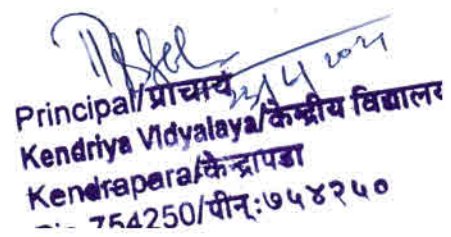 Principal/प्राचार्य
Kendriya Vidyalaya/केन्द्रीय विद्यालय
Kendrapara/केन्द्रापडा
754250/पीन्:७५४२५०